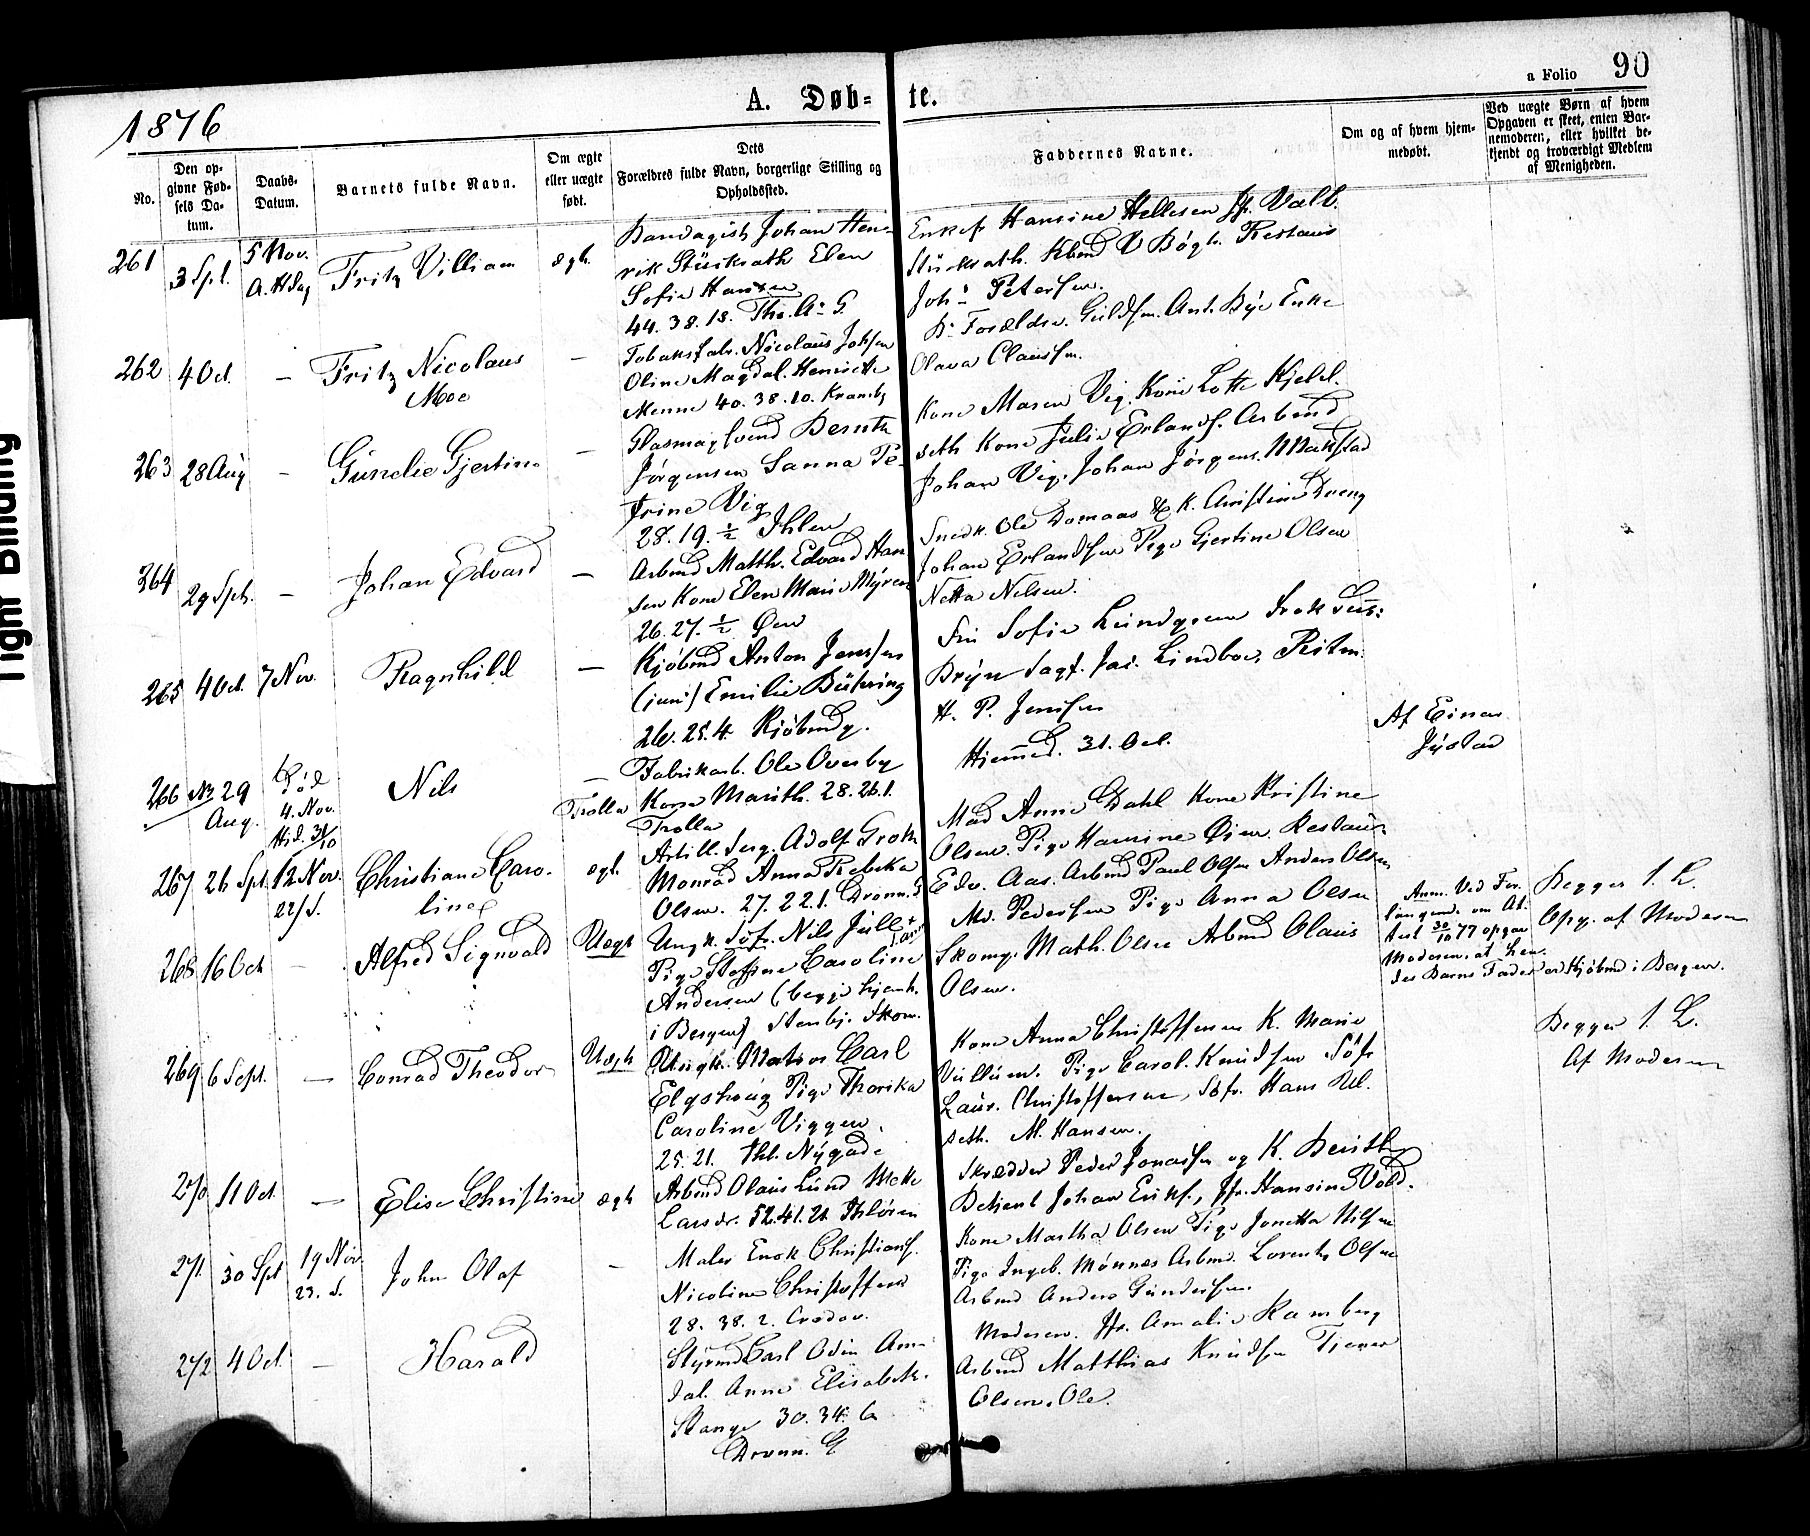 1876
A. Døb- te.
a Folio 90
No.
Den op-
givne Fød-
sels Da-
tum.
Daabs-
Datum.
Barnets fulde Navn.
Om ægte
eller uægte
født.
Dets
Forældres fulde Navn, borgerlige Stilling og
Opholdssted.
Faddernes Navne.
Om og af hvem hjem-
medøbt.
Ved uægte Børn af hvem
Opgaven er skeet, enten Bar-
nemoderen, eller hvilket be-
kjendt og troværdigt Medlem
af Menigheden.
261 3 Spt. 5 Nov. Fritz Villiam ægt.
Johan Hen-
rik Stücksrath Elen
Sofie Hansen
44. 38. 18. Ths. A. G.
Enkef Hansine Hellesen Jfr. Valb.
Stücksrath. Kbmd V Bøgh. Restaur
Joh. Petersen.
262 4 Oct. — Fritz Nicolaus
Moe —
Tobaksfabr. Nicolaus Johsen
Oline Magdal. Henriette
Menne 40. 38. 10. Krambg
B. Forældre. Guldsm. Ant. Bye Enke
Olava Claussen.
263 28 Aug — Gunelie Gjertine —
Glasmagsvend Bernth
Jørgensen Sanna Pe-
trine Vig
28. 19. ½ Ihlen
Kone Maren Vig. Kone Lotte Kjeld-
seth Kone Julie Erlands. Arbmd
Johan Vig. Johan Jørgens.
264 29 Spt. — Johan Edvard —
Arbmd Matth. Edvard Han
sen Kone Elen Marie Myren
26. 27. ½ Øen
Snedk. Ole Domaas & K. Christine
Johan Erlandsen Pige Gjertine Olsen
Netta Nelsen.
265 4 Oct. 7 Nov. Ragnhild —
Kjøbmd Anton Jenssen
(juni) Emilie Bühring
26. 25. 4. Kjøbmdg.
Fru Sofie Lundgreen Frøk
Bryn Sagf. Jac. Lindboe, Ritm.
H. P. Jenssen
Hjemmed. 31. Oct.
Af Einar
Jystad
266 29
Aug.
4. Nov.
31/10
Nils —
Trolla
Fabrikarb. Ole Overby
Kone Marith. 28. 26. 1.
Trolla
267 26 Spt. 12 Nov.
22/S.
Christiane Caro-
line ægt.
Artill. Serg. Adolf Groth
Monrad Anna Rebekka
Olsen. 27. 22 1. Dronn. G
Mad Anne Dahl Kone Kristine
Olsen. Pige Hansine Øien. Restaur
Edv. Aas. Arbmd Paul Olsen Anders Olsen
268 16 Oct — Alfred Signvald Uægt
Ungk. Søf. Nils Jull
Pige Steffine Caroline
Andersen (begge hjemh.
i Bergen) Stenbj. Skom.
Md. Pedersen Pige Anna Olsen
Skomg. Math. Olsen Arbmd Olaus
Olsen.
Anm. Ved For-
langende om At-
test 30/10 77 opgav
Moderen, at hen-
des Barns Fader er Kjøbmd i Bergen.
Begges 1. L.
Opg. af Moderen
269 6 Sept. — Conrad Theodor Uægt
Ungk. Carl
Elgshaug Pige Thorika
Caroline Viggen.
25. 21. Thl. Nygade
Kone Anna Christoffersen K. Marie
Vullum. Pige Carol. Knudsen Søf
Laur. Christoffersen, Søf. Hans Ul.
seth. M. Hansen.
Begges 1. L.
Af Moderen
270 11 Oct. — Elise Christine ægt
Arbmd Olaus Lund Mette
Larsdr. 52. 41. 21.
Skrædder Peder Jonassen og K. Berith
Betjent Johan Eriks., Jfr. Hansine Vold.
271. 30 Spt 19 Nov.
23. S.
John Olaf —
Maler Enok Christians.
Nicoline Christoffersd
28. 38. 2.
Kone Martha Olsen Pige Jonetta Nilsen
Pige Ingeb. Mønnes Arbm. Lorents Olsen
Arbmd Anders Gundersen.
272 4 Oct. — Harald
Styrmd Carl Odin Am-
dal. Anne Elisabeth.
Stange 30. 34. 6
Dronn. G.
Moderen. Jfr. Amalie Ramberg
Arbmd Matthias Knudsen Tjener
Olsen, Ole.
Tight Binding